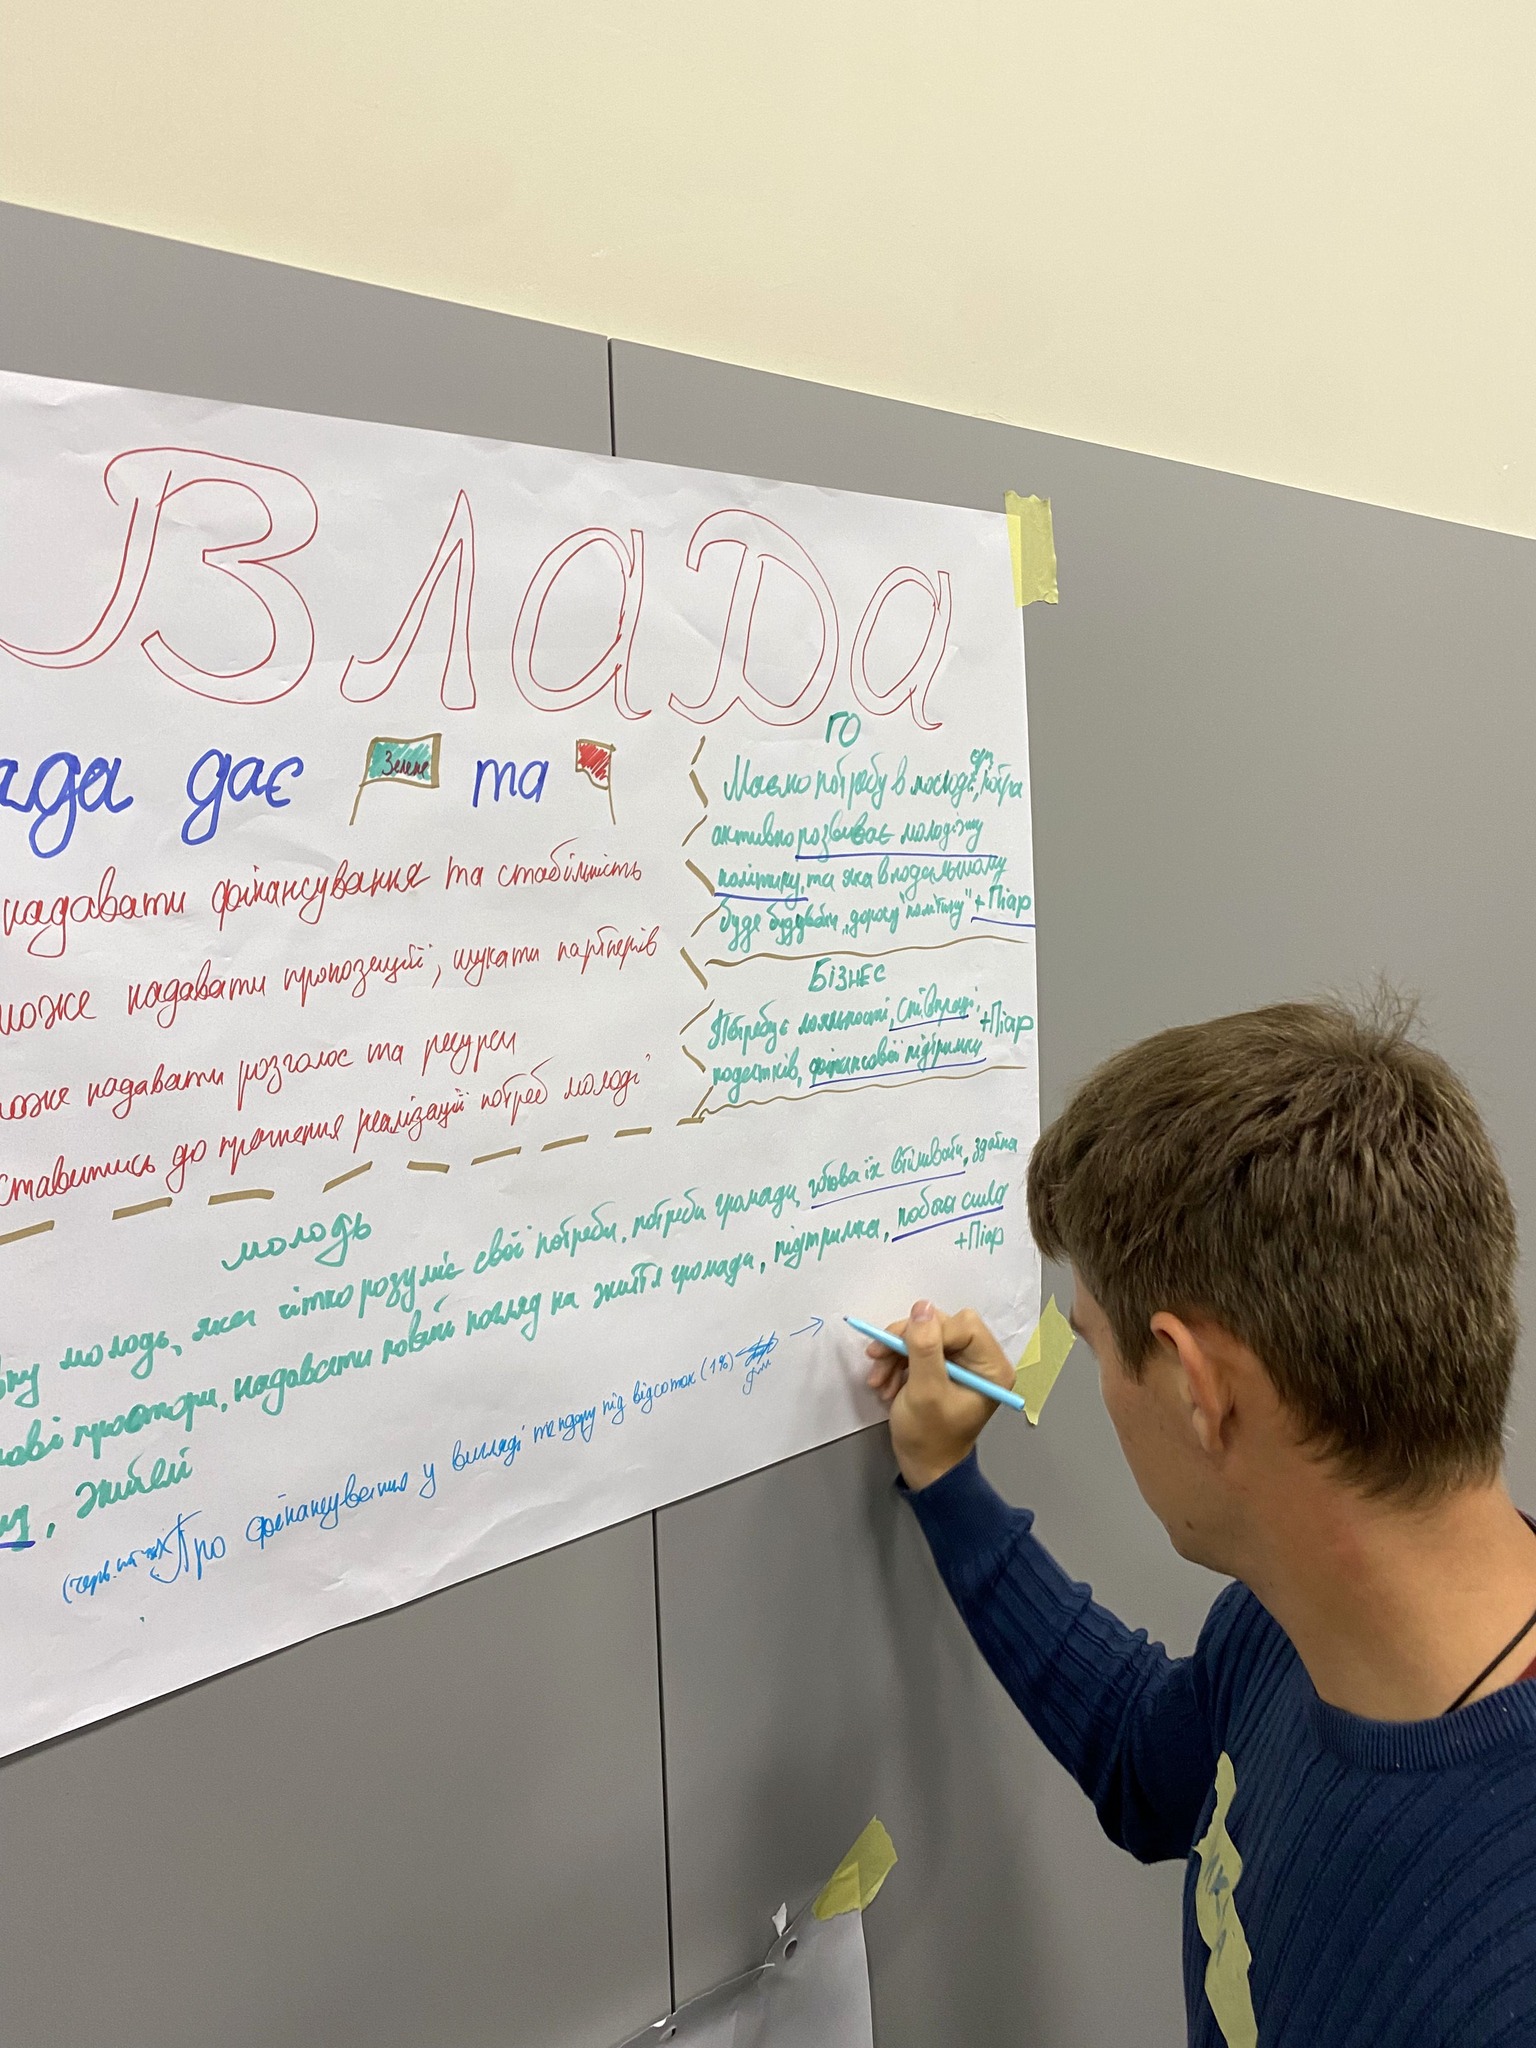 ВЛАДА
дає Зелене та
надавати фінансування та стабільність
може надавати пропозиції, шукати партнерів
надавати розголос та ресурси
до прагнення реалізації потреб молоді
ГО
Маємо потребу в молоді,
активно розвиває молодіжну
політику, та яка в подальшому
буде будувати „дорослу політику" + Піар
БІЗНЕС
Потребує лояльності, співпраці, + Піар
податків, фінансової підтримки
молодь
молодь, яка чітко розуміє свої потреби, потреби громади, готова їх втілювати, здатна
простори, надавати новий погляд на життя громади, підтримка, робоча сила
+ Піар
, жителі
Про фінансування у вигляді тендеру під відсоток (1%) →